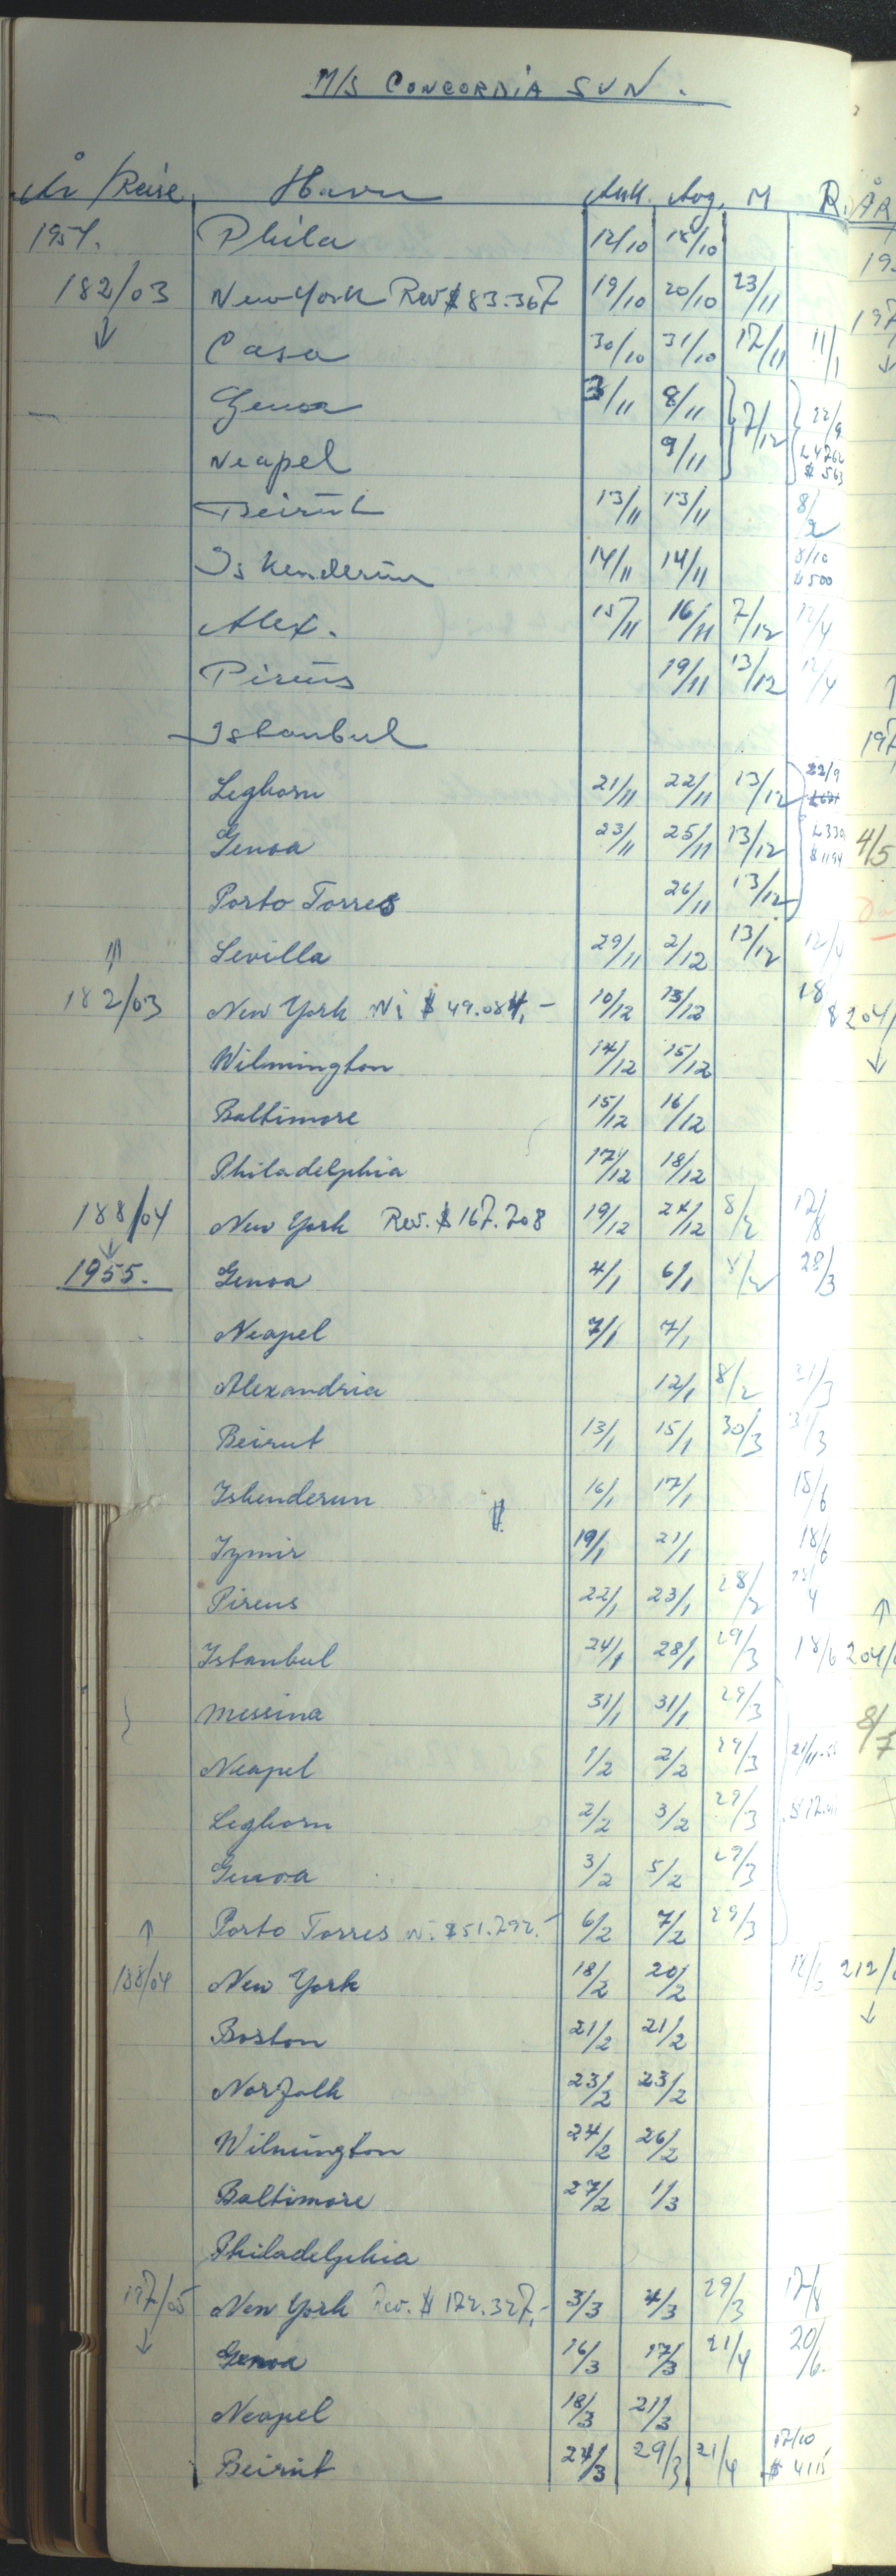 M/S CONCORDIA SUN.
År/Reise Havn Ank. Avg. M R. ÅR
1954. Phila 12/10 18/10
182/03 New York Rev $ 83.367 19/10 20/10 23/11
↓ Casa 30/10 31/10 17/11 11/1
Genoa 3/11 8/11 } 7/12 } 22/9
Neapel 9/11 £4762 $ 563
Beirut 13/11 13/11 8/2
Iskenderun 14/11 14/11 8/10 $500
Alex. 15/11 16/11 7/12 12/4
Pireus 19/11 13/12 12/4
Istanbul
Leghorn 21/11 22/11 13/12 22/9
Genoa 23/11 25/11 13/12 $1194 4/5
Porto Torres 26/11 13/12
↑ Sevilla 29/11 2/12 13/12 12/4
182/03 New York N: $ 49.084,- 10/12 13/12 18/8 204/
Wilmington 14/12 15/12
Baltimore 15/12 16/12
Philadelphia 17/12 18/12
188/04 New York Rev. $ 167.208 19/12 24/12 8/2 17/8
↓
1955. Genoa 4/1 6/1 8/2 28/3
Neapel 7/1 7/1
Alexandria 12/1 8/2 31/3
Beirut 13/1 15/1 30/3 31/3
Iskenderun $ 16/1 17/1 18/6
Izmir 19/1 21/1 18/6
Pireus 22/1 23/1 28/2
Istanbul 24/1 28/1 29/3 18/6 204/
Messina 31/1 31/1 29/3
Neapel 1/2 2/2 29/3
Leghorn 2/2 3/2 29/3
Genoa 3/2 5/2 29/3
↑ Porto Torres N: $51.292.- 6/2 7/2 29/3
188/04 New York 18/2 20/2 212/
Boston 21/2 21/2
Norfolk 23/2 23/2
Wilmington 24/2 26/2
Baltimore 27/2 1/3
Philadelphia
197/05 New York Rev. $ 172.327,- 3/3 4/3 29/3 17/8
↓ Genoa 16/3 17/3 21/4 20/6
Neapel 18/3 21/3
Beirut 24/3 29/3 21/4 17/10 $ 4115